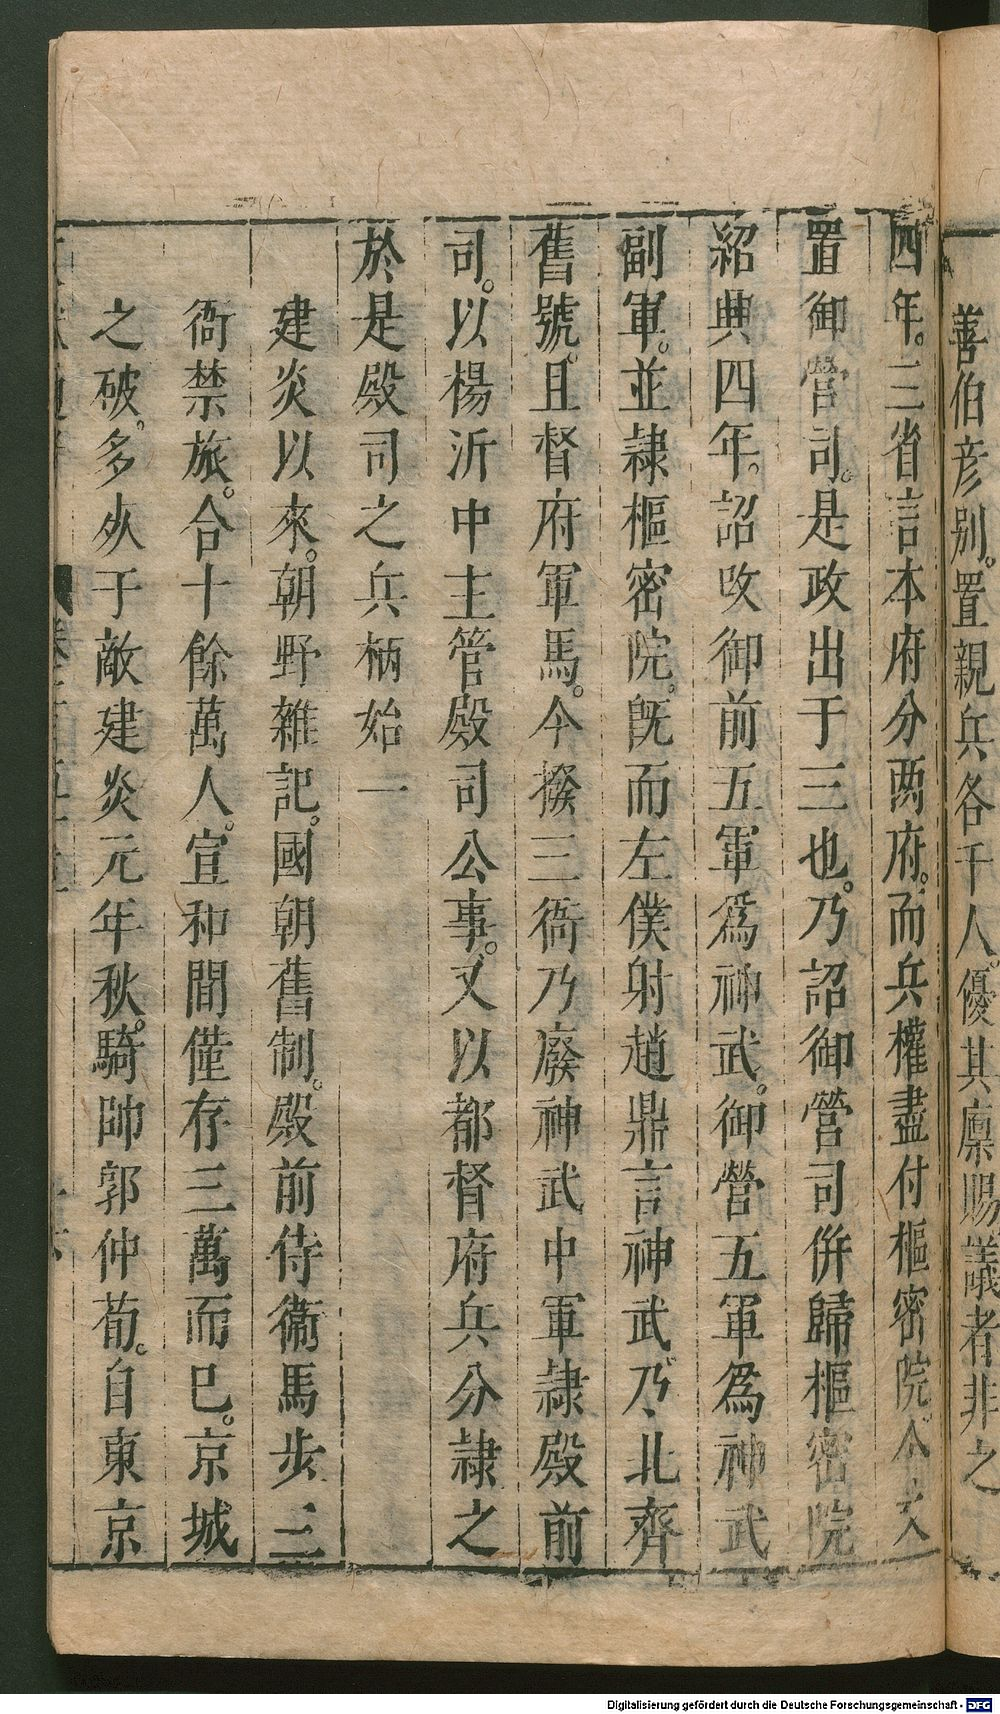 善伯彦別。置親兵各千人。優其廪賜。議者非之
四年。三省言本府分兩府。而兵權盡付樞密院。今又
置御營司。是政出于三也。乃詔御營司併歸樞密院
紹興四年。詔攺御前五軍爲神武。御營五軍爲神武
副軍。並隸樞密院。旣而左僕射趙鼎言神武乃北齊
舊號。且督府軍馬。今撥三衙乃廢神武中軍隸殿前
司。以楊沂中主管殿司公事。又以都督府兵分隸之
於是殿司之兵柄始一
建炎以來。朝野雜記。國朝舊制。殿前侍衞馬步三
衙禁旅。合十餘萬人。宣和間僅存三萬而已。京城
之破。多死于敵建炎元年秋。騎帥郭仲荀。自東京
Digitalisierung gefördert durch die Deutsche Forschungsgemeinschaft - DFG